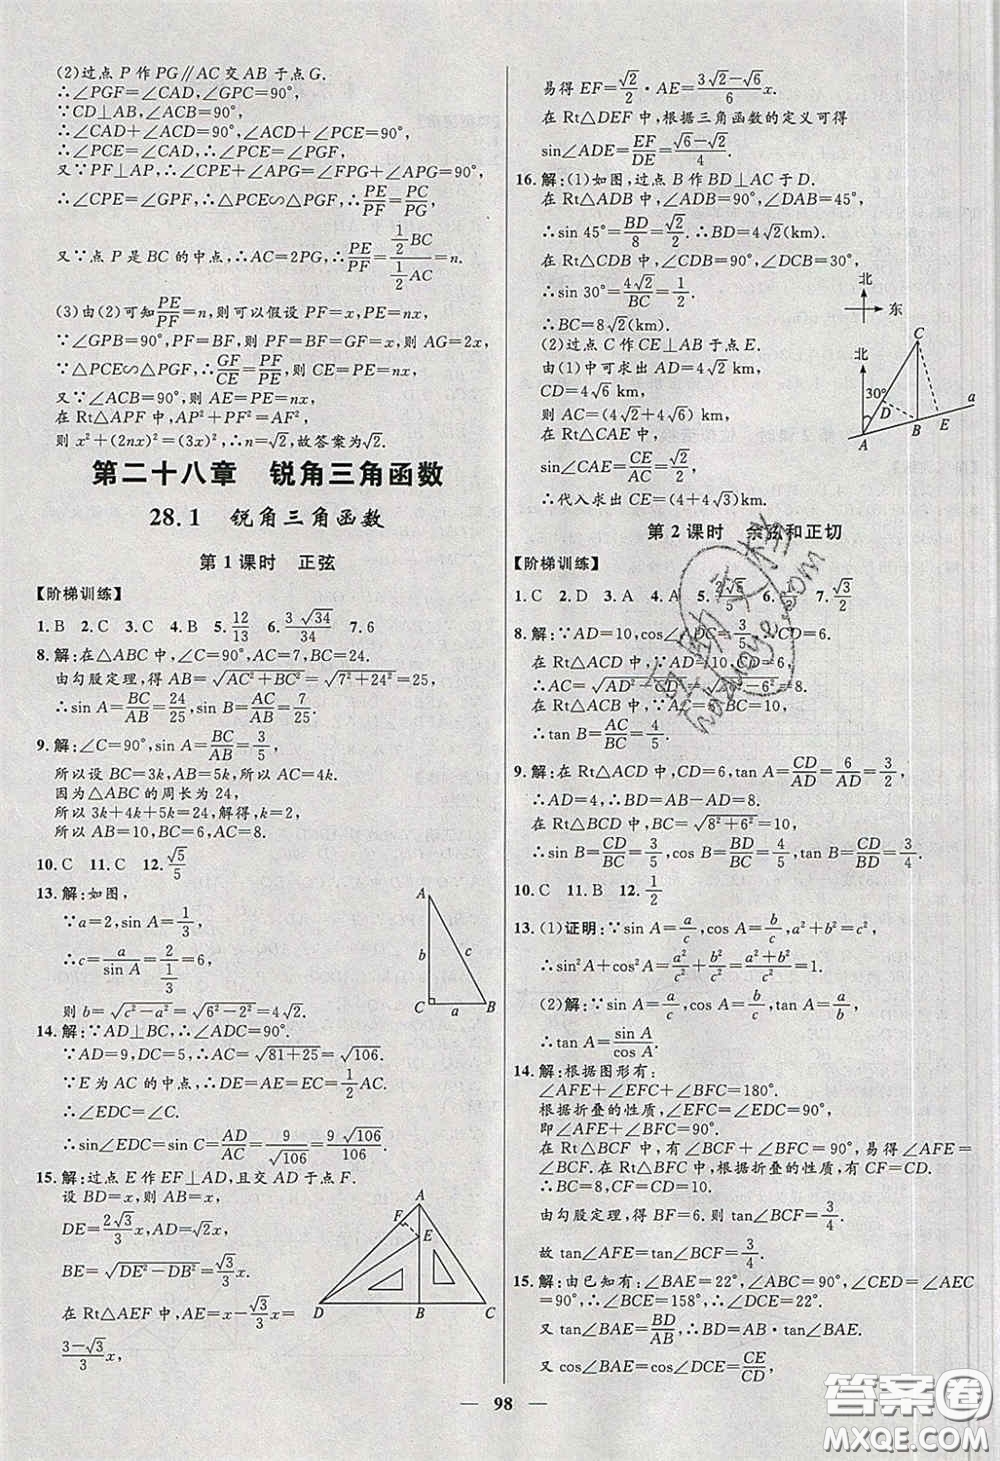 (2)过点 P 作 PG∥AC 交 AB 于点 G.
∴∠PGF=∠CAD,∠GPC=90°.
∵CD⊥AB,∴∠CAP=90°,
∴∠CAD+∠ACD=∠ACD+∠PCE=90°.
∴∠PCE=∠CAD,∴∠PCE=∠PGF.
又∵PF⊥AP,∴∠CPE+∠APG=∠FPG+∠APG=90°.
∴∠CPE=∠GPF,∴△PCE∽△PGF,∴PE/PF=PC/PG,
又∵点 P 是 BC 的中点,∴AC=2PG,∴PE/PF=(1/2 BC)/(1/2 AC)=n.
(3)由(2)可知PE/PF=n,则可以假设 PF=x,PE=nx,
∵∠GPB=90°,PF=BF,则 PF=BF=GF=x,则 AG=2x,
∵△PCE∽△PGF,∴GF/CE=PF/PE=1/n,则 CE=nx,
又∵∠CAB=90°,则 AE=PE=nx,
在 Rt△APF 中,AP²+PF²=AF²,
则 x²+(2nx)²=(3x)²,∴n=√2,故答案为√2.
第二十八章 锐角三角函数
28.1 锐角三角函数
第 1 课时 正弦
【阶梯训练】
1.B 2.C 3.C 4.B 5.12/13 6.3√34/34 7.6
8.解:在△ABC 中,∠C=90°,AC=7,BC=24.
由勾股定理,得 AB=√(AC²+BC²)=√(7²+24²)=25,
∴sin A=BC/AB=24/25,sin B=AC/AB=7/25.
9.解:∠C=90°,sin A=BC/AB=3/5,
所以设 BC=3k,AB=5k,AC=4k.
因为△ABC 的周长为 24,
所以 3k+4k+5k=24,解得,k=2.
所以 AB=10,BC=6,AC=8.
10.C 11.C 12.√5/5
13.解:如图,
∵a=2,sin A=1/3,
∴c=a/sin A=2/(1/3)=6,
则 b=√(c²-a²)=√(6²-2²)=4√2.
A
b
c
C
a
B
14.解:∵AD⊥BC,∴∠ADC=90°.
∵AD=9,DC=5,∴AC=√(81+25)=√106.
∵E 为 AC 的中点,∴DE=AE=EC=1/2 AC,
∴∠EDC=∠C.
∴sin∠EDC=sin C=AD/AC=9/√106=9√106/106.
15.解:过点 E 作 EF⊥AD,且交 AD 于点 F.
设 BD=x,则 AB=x,
DE=2√3/3 x,AD=√2x,
BE=√(DE²-DB²)=√3/3 x,
在 Rt△AEF 中,AE=x-√3/3 x=
(3-√3)/3 x,
A
F
E
D
B
C
易得 EF=√2/2·AE=(3√2-√6)/6 x.
在 Rt△DEF 中,根据三角函数的定义可得
sin∠ADE=EF/DE=(√6-√2)/4.
16.解:(1)如图,过点 B 作 BD⊥AC 于 D.
在 Rt△ADB 中,∠ADB=90°,∠DAB=45°,
∴sin 45°=BD/8=√2/2.∴BD=4√2(km).
在 Rt△CDB 中,∠CDB=90°,∠BCD=30°,
∴sin 30°=4√2/BC=1/2.
∴BC=8√2(km).
(2)过点 C 作 CE⊥AB 于点 E.
由(1)中可求出 AD=4√2 km,
CD=4√6 km,
则 AC=(4√2+4√6) km.
在 Rt△CAE 中,
sin∠CAE=CE/AC=√2/2,
∴代入求出 CE=(4+4√3)km.
北
东
北
C
30°
D
a
B
E
A
第 2 课时 余弦和正切
【阶梯训练】
1.C 2.D 3.A 4.A 5.2√5/5 6. 7.√3/2
8.解:∵AD=10,cos∠ADC=3/5,∴CD=6.
在 Rt△ACD 中,∵AD=10,CD=6,
∴AC=√(AD²-CD²)=√(10²-6²)=8.
在 Rt△ACB 中,∵AC=8,BC=10,
∴tan B=AC/BC=4/5.
9.解:在 Rt△ACD 中,CD=6,tan A=CD/AD=6/AD=3/2,
∴AD=4.∴BD=AB-AD=8.
在 Rt△BCD 中,BC=√(8²+6²)=10.
∴sin B=CD/BC=3/5,cos B=BD/BC=4/5,tan B=CD/BD=3/4.
10.C 11.B 12.1/2
13.(1)证明:∵sin A=a/c,cos A=b/c,a²+b²=c²,
∴sin²A+cos²A=a²/c²+b²/c²=(a²+b²)/c²=c²/c²=1.
(2)解:∵sin A=a/c,cos A=b/c,tan A=a/b,
∴tan A=sin A/cos A.
14.解:根据图形有:
∠AFE+∠EFC+∠BFC=180°.
根据折叠的性质,∠EFC=∠EDC=90°,
即∠AFE+∠BFC=90°.
在 Rt△BCF 中,有∠BCF+∠BFC=90°,易得∠AFE=
∠BCF,在 Rt△BFC 中,根据折叠的性质,有 CF=CD.
∴BC=8,CF=CD=10,
由勾股定理,得 BF=6.则 tan∠BCF=3/4.
故 tan∠AFE=tan∠BCF=3/4.
15.解:由已知有:∠BAE=22°,∠ABC=90°,∠CED=∠AEC
=90°,∴∠BCE=158°,∴∠DCE=22°.
又 tan∠BAE=BD/AB,∴BD=AB·tan∠BAE,
又 cos∠BAE=cos∠DCE=CE/CD,
98
答案圈
MXQE.COM